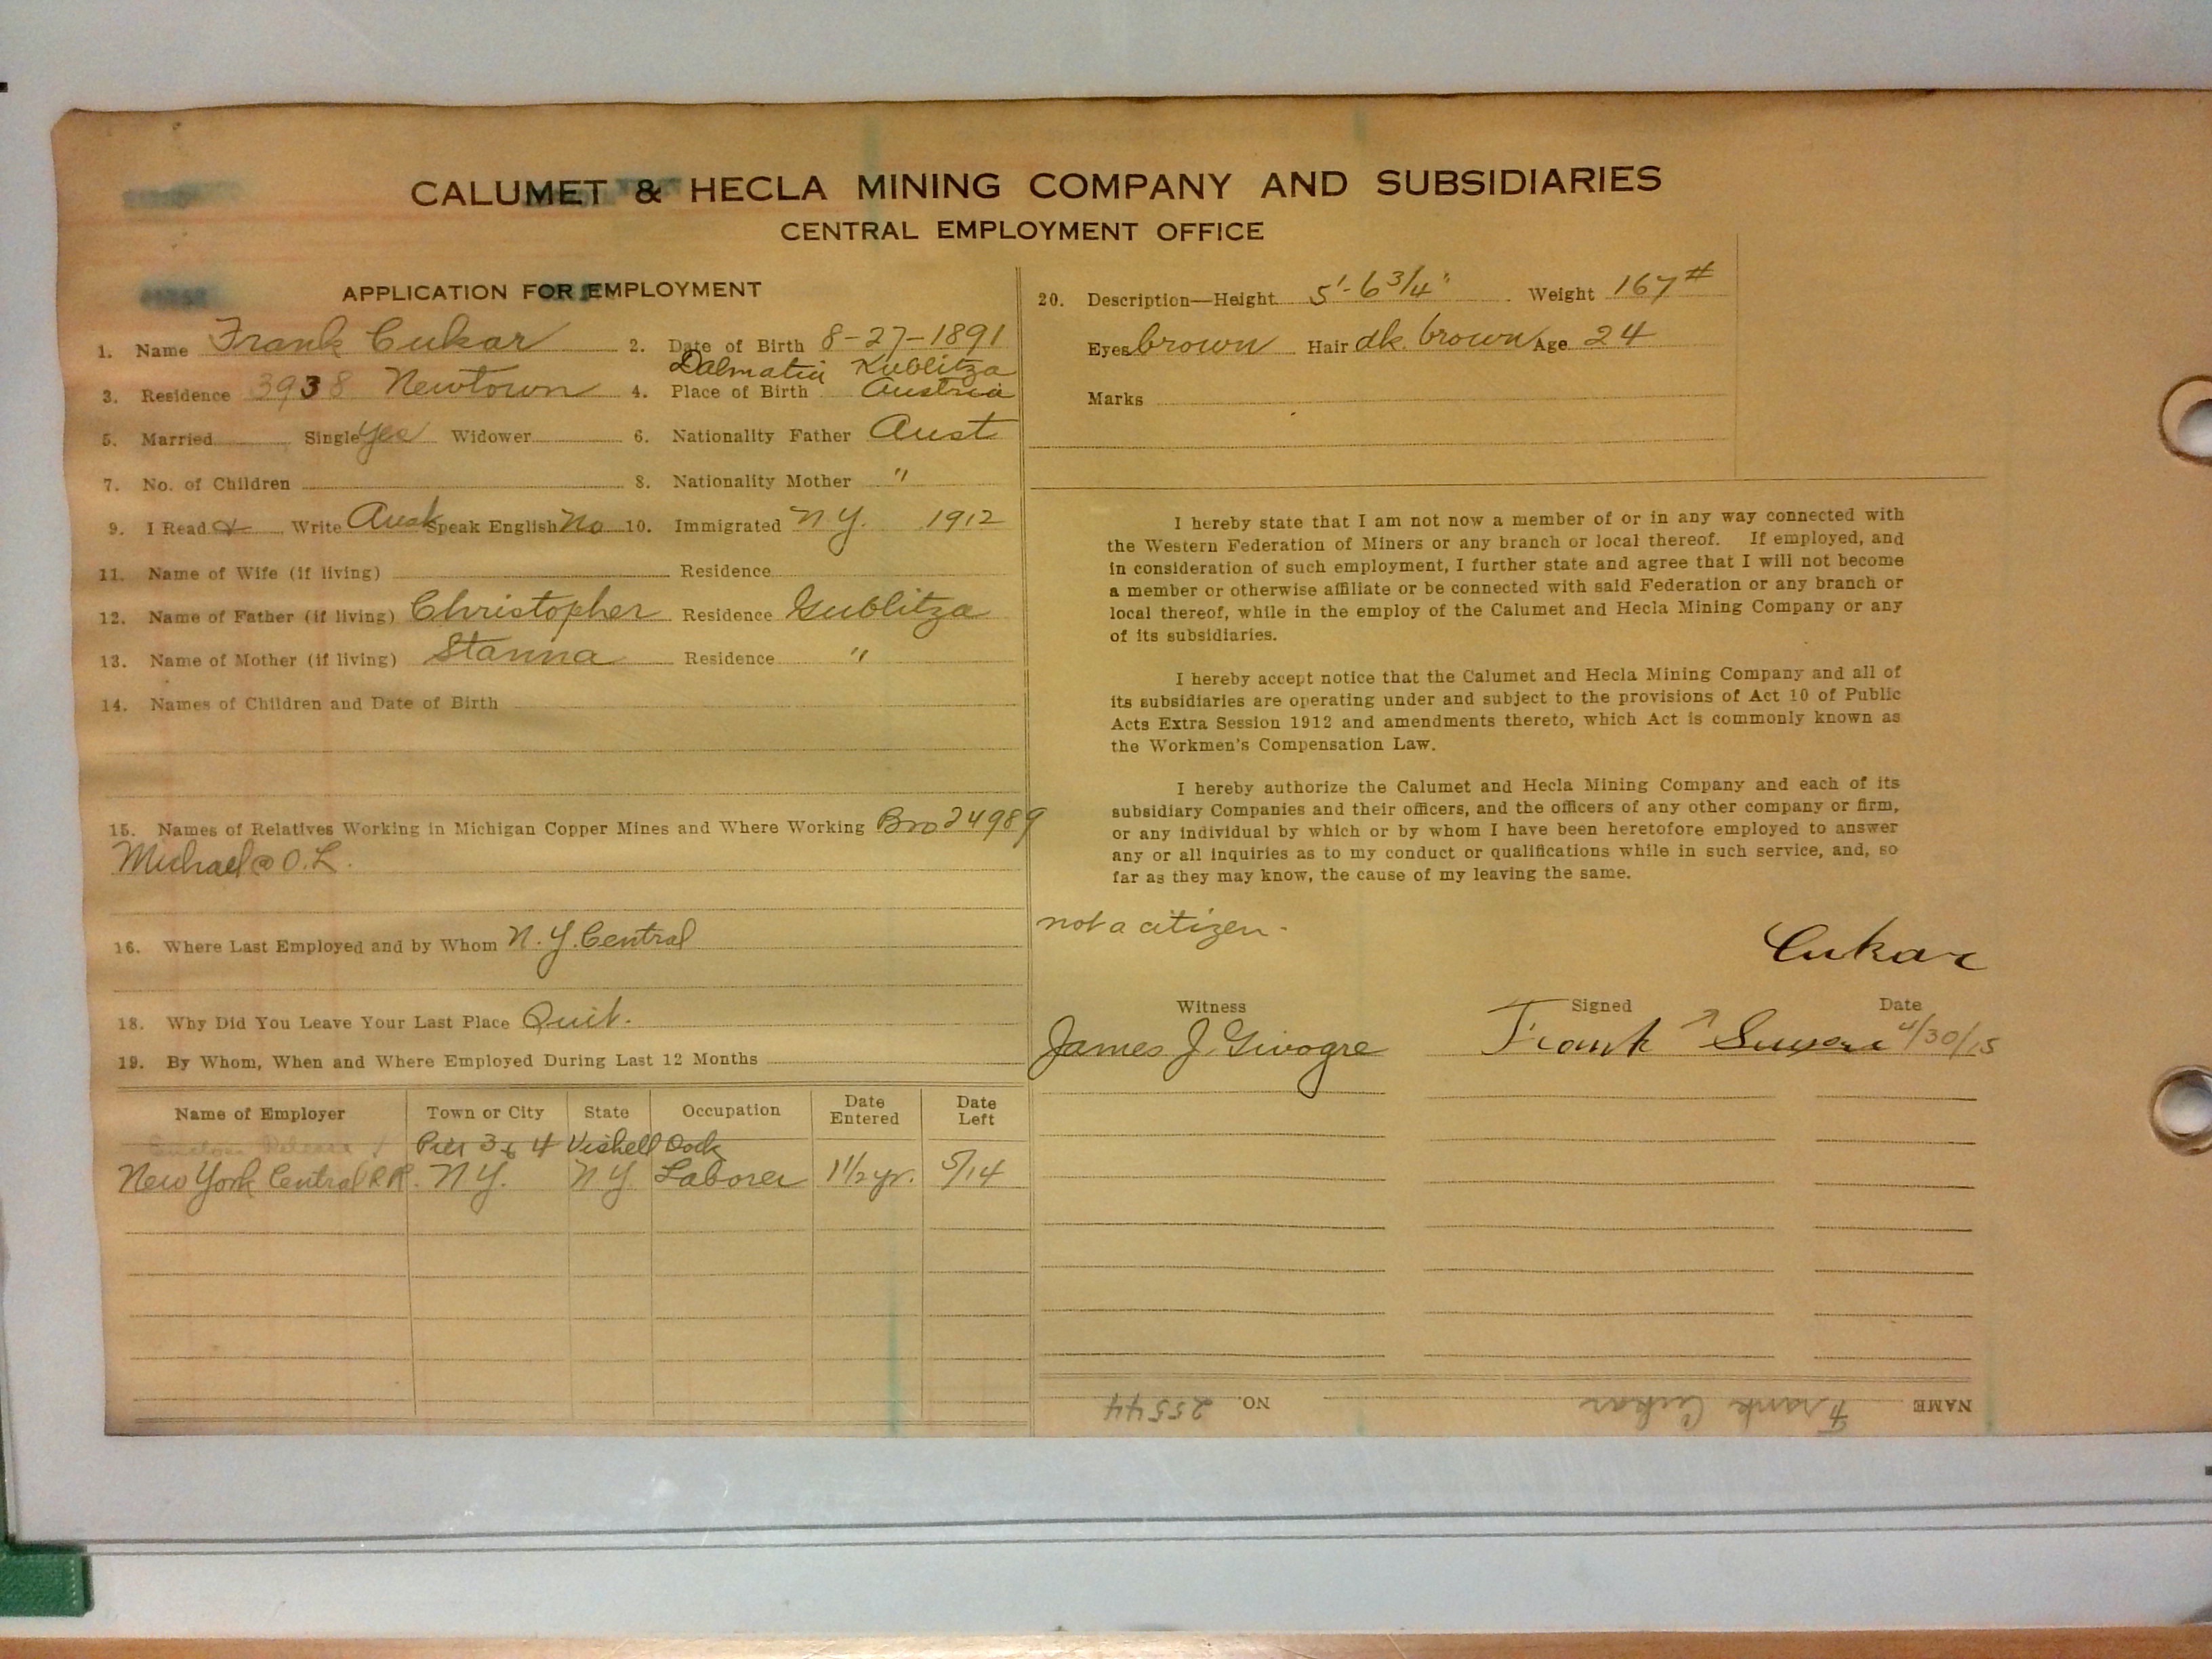 CALUMET & HECLA MINING COMPANY AND SUBSIDIARIES
CENTRAL EMPLOYMENT OFFICE
APPLICATION FOR EMPLOYMENT
1. Name Frank Cukar 2. Date of Birth 8-27-1891
Dalmatia Kublitza
3. Residence 3938 Newtown 4. Place of Birth Austria
5. Married Single yes Widower 6. Nationality Father Aust
7. No. of Children 8. Nationality Mother "
9. I Read & Write Aust Speak English No 10. Immigrated N.Y. 1912
11. Name of Wife (if living) Residence
12. Name of Father (if living) Christopher Residence Gublitza
13. Name of Mother (if living) Stanna Residence "
14. Names of Children and Date of Birth
15. Names of Relatives Working in Michigan Copper Mines and Where Working Bro 24989
Michael @ O.L.
16. Where Last Employed and by Whom N.Y. Central
18. Why Did You Leave Your Last Place Quit.
19. By Whom, When and Where Employed During Last 12 Months
Name of Employer Town or City State Occupation Date Entered Date Left
Pier 3 & 4 Dock
New York Central RR. N.Y. N.Y. Laborer 1 1/2 yr. 5/14
20. Description—Height 5'-6 3/4" Weight 167#
Eyes brown Hair dk. brown Age 24
Marks
I hereby state that I am not now a member of or in any way connected with
the Western Federation of Miners or any branch or local thereof. If employed, and
in consideration of such employment, I further state and agree that I will not become
a member or otherwise affiliate or be connected with said Federation or any branch or
local thereof, while in the employ of the Calumet and Hecla Mining Company or any
of its subsidiaries.
I hereby accept notice that the Calumet and Hecla Mining Company and all of
its subsidiaries are operating under and subject to the provisions of Act 10 of Public
Acts Extra Session 1912 and amendments thereto, which Act is commonly known as
the Workmen's Compensation Law.
I hereby authorize the Calumet and Hecla Mining Company and each of its
subsidiary Companies and their officers, and the officers of any other company or firm,
or any individual by which or by whom I have been heretofore employed to answer
any or all inquiries as to my conduct or qualifications while in such service, and, so
far as they may know, the cause of my leaving the same.
not a citizen.
Cukar
Witness Signed Date
James J. Frank 4/30/15
NAME Frank Cukar NO. 25544